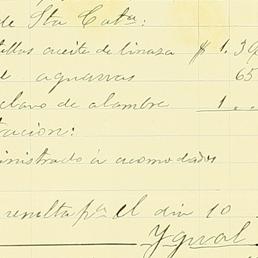 de Sta Cata:
aceite de linaza $ 1.39
aguarras 65
clavo de alambre 1..
ministrado á acomodados
resulta pa el dia 10
Ygual